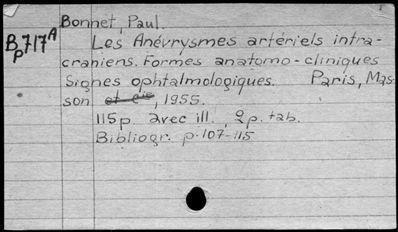 Bonnet, Paul.
Bp717A Les Anévrysmes artériels intra-
craniens. Formes anatomo-cliniques
Signes ophtalmologiques. Paris, Mas-
son et cie, 1955.
115p. avec ill., 2p. tab.
Bibliogr. p. 107-115